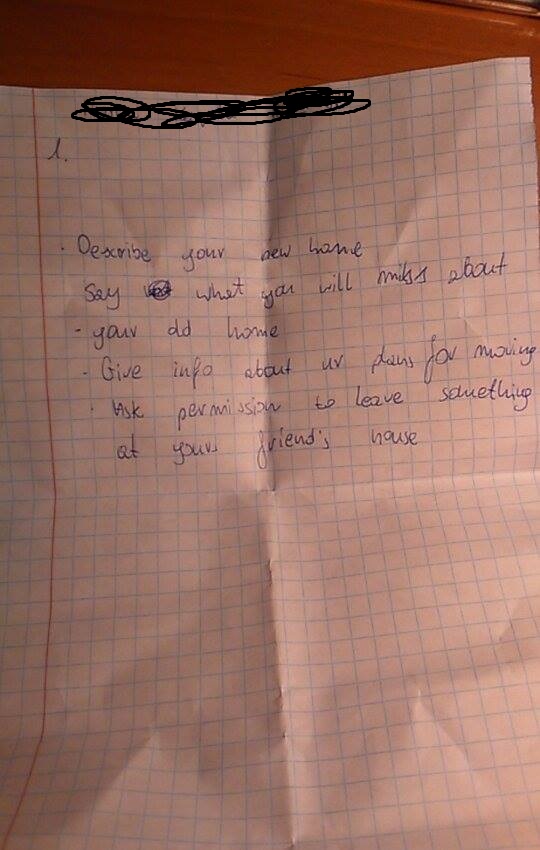 1.
· Describe your new home
Say what you will miss about
- your old home
- Give info about ur plans for moving
· Ask permission to leave something
at yours friend's house